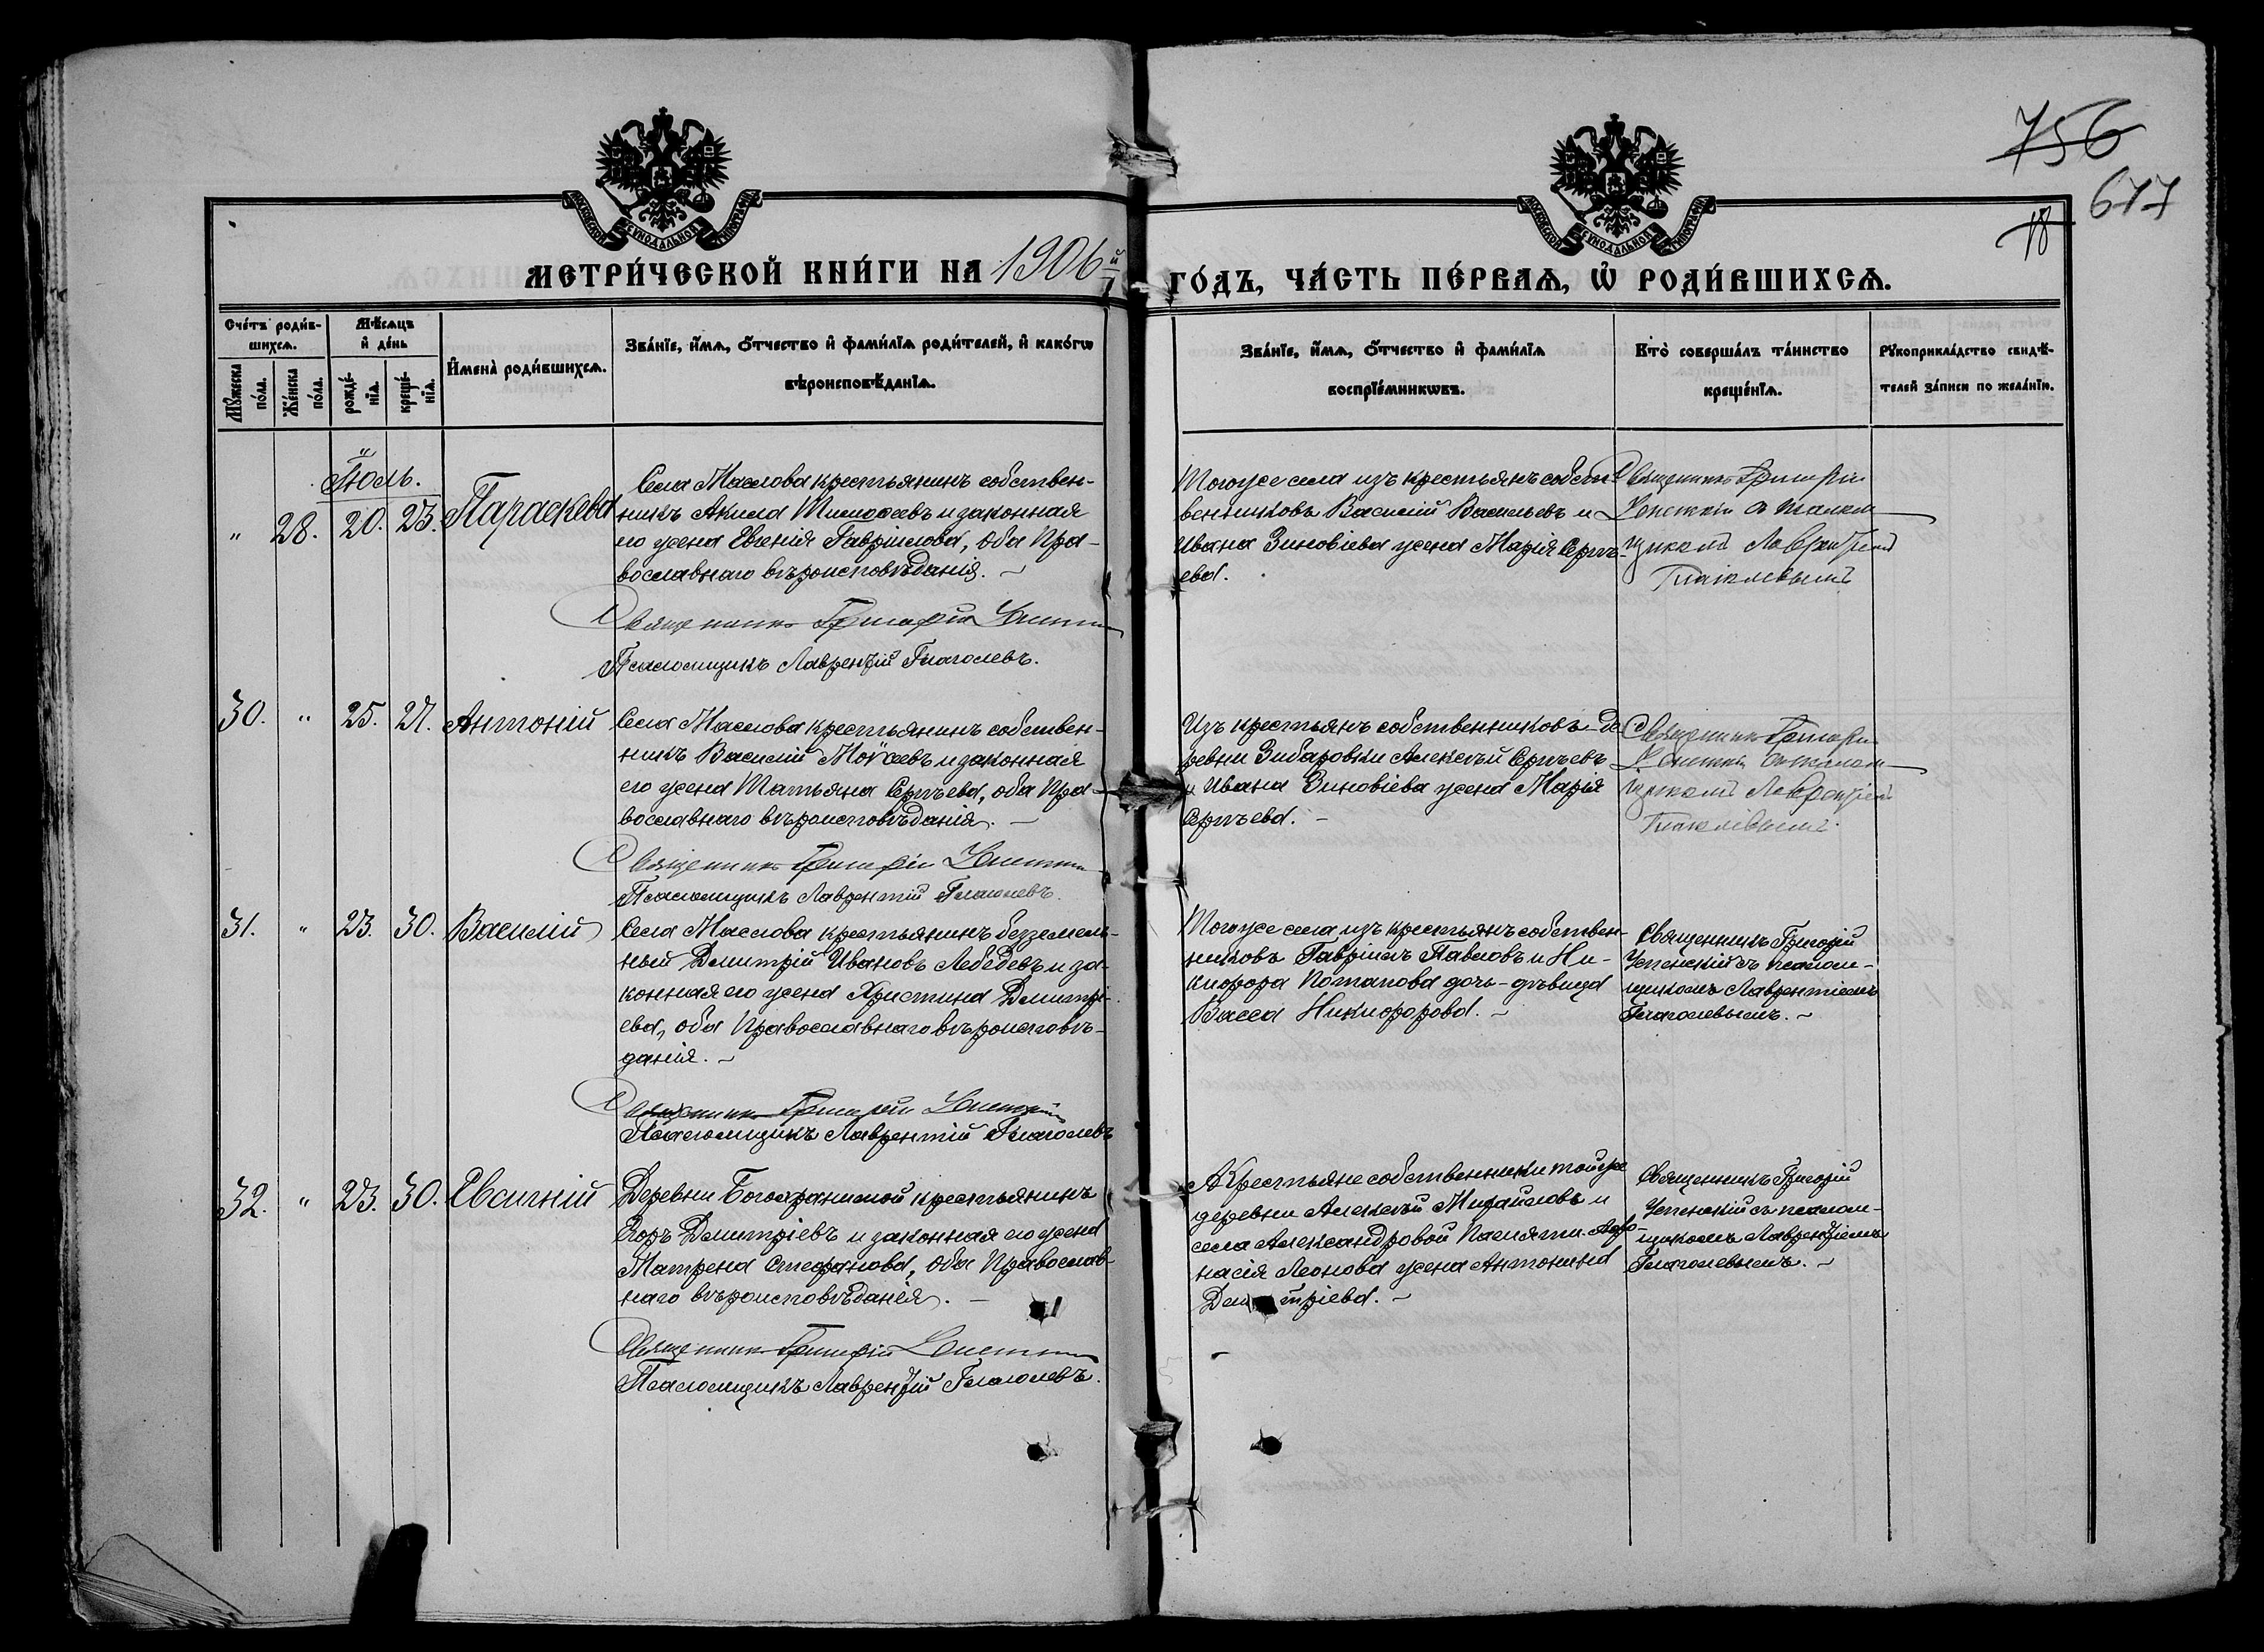 756
677
18
МОСКОВСКОЙ СѴНОДАЛЬНОЙ ТИПОГРАФІИ
МОСКОВСКОЙ СѴНОДАЛЬНОЙ ТИПОГРАФІИ
МЕТРИ́ЧЕСКОЙ КНИ́ГИ НА 1906й ГО́ДЪ, ЧА́СТЬ ПЕ́РВАѦ, Ѡ҆ РОДИ́ВШИХСѦ.
Сче́тъ роди́в-
шихсѧ.
Мꙋ́жеска по́ла.
Же́нска по́ла.
Мѣ́сѧцъ
и҆ де́нь
рожде́-
нїѧ.
креще́-
нїѧ.
И҆мена̀ роди́вшихсѧ.
Зва́нїе, и҆́мѧ, ѻ҆́тчество и҆ фами́лїѧ роди́телей, и҆ како́гѡ
вѣроисповѣ́данїѧ.
Зва́нїе, и҆́мѧ, ѻ҆́тчество и҆ фами́лїѧ
воспрїе́мникѡвъ.
Кто̀ соверша́лъ та́инство
креще́нїѧ.
Рꙋкоприкла́дство свидѣ́-
телей за́писи по жела́нїю.
Іюль.
" 28. 20. 23. Параскева
Села Маслова крестьянинъ собствен-
никъ Акила Тимофеевъ и законная
его жена Евгенія Гавріилова, оба Пра-
вославнаго вѣроисповѣданія.
Священникъ Григорій Успенскій
Псаломщикъ Лаврентій Глаголевъ.
Тогоже села изъ крестьянъ собст-
венниковъ Василій Васильевъ и
Ивана Зиновіева жена Марія Сергѣ-
ева.
Священникъ Григорій
Успенскій съ псалом-
щикомъ Лаврентіемъ
Глаголевымъ
30. " 25. 27. Антоній
Села Маслова крестьянинъ собствен-
никъ Василій Моѵсеевъ и законная
его жена Татьяна Сергѣева, оба Пра-
вославнаго вѣроисповѣданія. —
Священникъ Григорій Успенскій
Псаломщикъ Лаврентій Глаголевъ.
Изъ крестьянъ собственниковъ де-
ревни Зибаровки Алексѣй Сергѣевъ
и Ивана Зиновіева жена Марія
Сергѣева. —
Священникъ Григорій
Успенскій съ псалом-
щикомъ Лаврентіемъ
Глаголевымъ.
31. " 23. 30. Василій
Села Маслова крестьянинъ безземель-
ный Димитрій Ивановъ Лебедевъ и за-
конная его жена Христина Димитрі-
ева, оба Православнаго вѣроисповѣ-
данія.
Священникъ Григорій Успенскій
Псаломщикъ Лаврентій Глаголевъ
Тогоже села изъ крестьянъ собствен-
никовъ Гавріилъ Павловъ и Ни-
кифора Потапова дочь-дѣвица
Васса Никифорова.
Священникъ Григорій
Успенскій съ псалом-
щикомъ Лаврентіемъ
Глаголевымъ.
32. " 23. 30. Евсигній
Деревни Богохранимой крестьянинъ
Егоръ Димитріевъ и законная его жена
Матрена Стефанова, оба Православ-
наго вѣроисповѣданія. —
Священникъ Григорій Успенскій
Псаломщикъ Лаврентій Глаголевъ.
Крестьяне собственники тойже
деревни Алексѣй Михайловъ и
села Александровой Памяти Афа-
насія Леонова жена Антонина
Димитріева.
Священникъ Григорій
Успенскій съ псалом-
щикомъ Лаврентіемъ
Глаголевымъ.